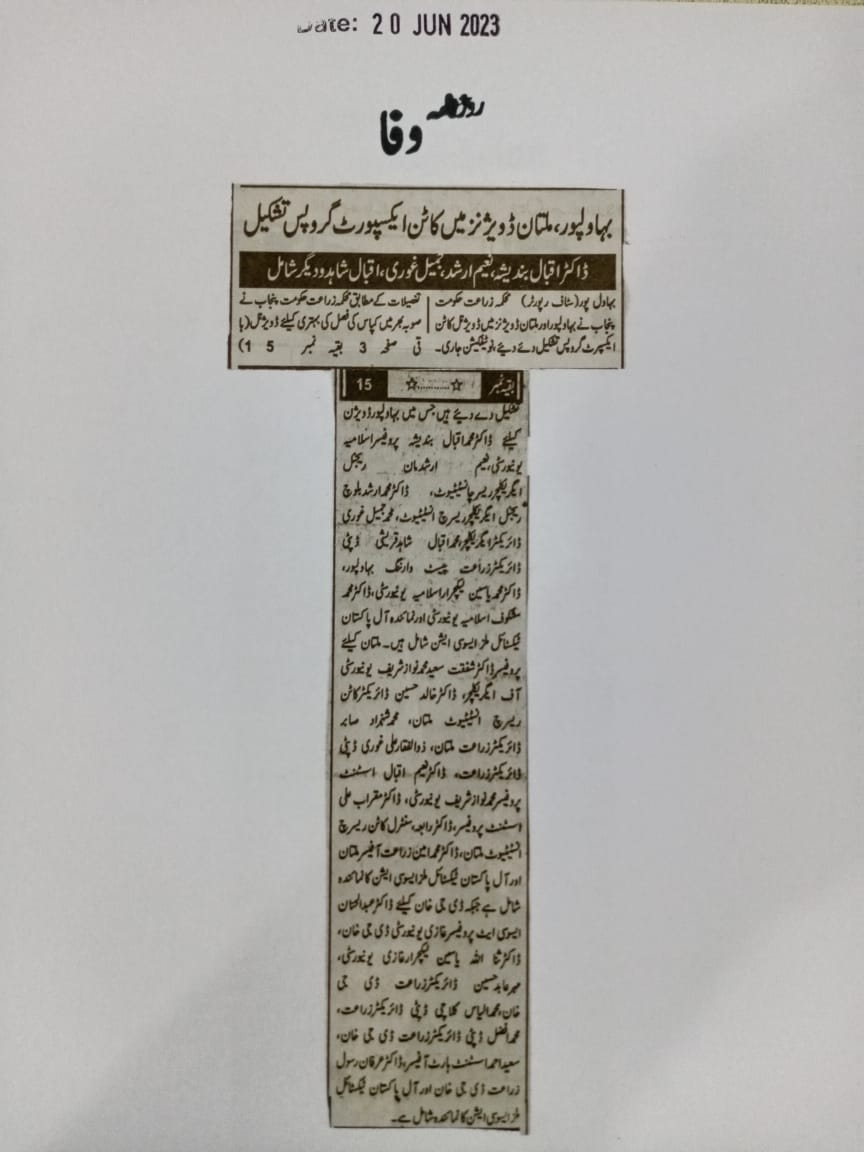 Date: 20 JUN 2023
روزنامہ وفا
بہاولپور، ملتان ڈویژنز میں کاٹن ایکسپورٹ گروپس تشکیل
ڈاکٹر اقبال بندیشہ، نعیم ارشد، جمیل غوری، اقبال شاہد و دیگر شامل
بہاول پور (سٹاف رپورٹر) محکمہ زراعت حکومت
پنجاب نے بہاولپور اور ملتان ڈویژنز میں ڈویژنل کاٹن
ایکسپرٹ گروپس تشکیل دے دیئے، نوٹیفکیشن جاری۔
تفصیلات کے مطابق محکمہ زراعت حکومت پنجاب نے
صوبہ بھر میں کپاس کی فصل کی بہتری کیلئے ڈویژنل (با
قی صفحہ 3 بقیہ نمبر 15)
بقیہ نمبر ☆..........☆ 15
تشکیل دے دیئے ہیں جس میں بہاولپور ڈویژن
کیلئے ڈاکٹر محمد اقبال بندیشہ پروفیسر اسلامیہ
یونیورسٹی، نعیم ارشد مان ریجنل
ایگریکلچر ریسرچ انسٹیٹیوٹ، ڈاکٹر محمد ارشد بلوچ
ریجنل ایگریکلچر ریسرچ انسٹیٹیوٹ، محمد جمیل غوری
ڈائریکٹر ایگریکلچر، محمد اقبال شاہد قریشی ڈپٹی
ڈائریکٹر زراعت پیسٹ وارننگ بہاولپور،
ڈاکٹر محمد یاسین لیکچرار اسلامیہ یونیورسٹی، ڈاکٹر محمد
اسلامیہ یونیورسٹی اور نمائندہ آل پاکستان
ٹیکسٹائل ملز ایسوسی ایشن شامل ہیں۔ ملتان کیلئے
پروفیسر ڈاکٹر شفقت سعید محمد نواز شریف یونیورسٹی
آف ایگریکلچر، ڈاکٹر خالد حسین ڈائریکٹر کاٹن
ریسرچ انسٹیٹیوٹ ملتان، محمد شہزاد صابر
ڈائریکٹر زراعت ملتان، ذوالفقار علی غوری ڈپٹی
ڈائریکٹر زراعت، ڈاکٹر نعیم اقبال اسسٹنٹ
پروفیسر محمد نواز شریف یونیورسٹی، ڈاکٹر مقرب علی
اسسٹنٹ پروفیسر، ڈاکٹر رابعہ، سنٹرل کاٹن ریسرچ
انسٹیٹیوٹ ملتان، ڈاکٹر محمد امین زراعت آفیسر ملتان
اور آل پاکستان ٹیکسٹائل ملز ایسوسی ایشن کا نمائندہ
شامل ہے جبکہ ڈی جی خان کیلئے ڈاکٹر عبدالحنان
ایسوسی ایٹ پروفیسر غازی یونیورسٹی ڈی جی خان،
ڈاکٹر ثنا اللہ یاسین لیکچرار غازی یونیورسٹی،
مہر عابد حسین ڈائریکٹر زراعت ڈی جی
خان، محمد الیاس کلاچی ڈپٹی ڈائریکٹر زراعت،
محمد افضل ڈپٹی ڈائریکٹر زراعت ڈی جی خان،
سعید احمد اسسٹنٹ ہارٹ آفیسر، ڈاکٹر عرفان رسول
زراعت ڈی جی خان اور آل پاکستان ٹیکسٹائل
ملز ایسوسی ایشن کا نمائندہ شامل ہے۔